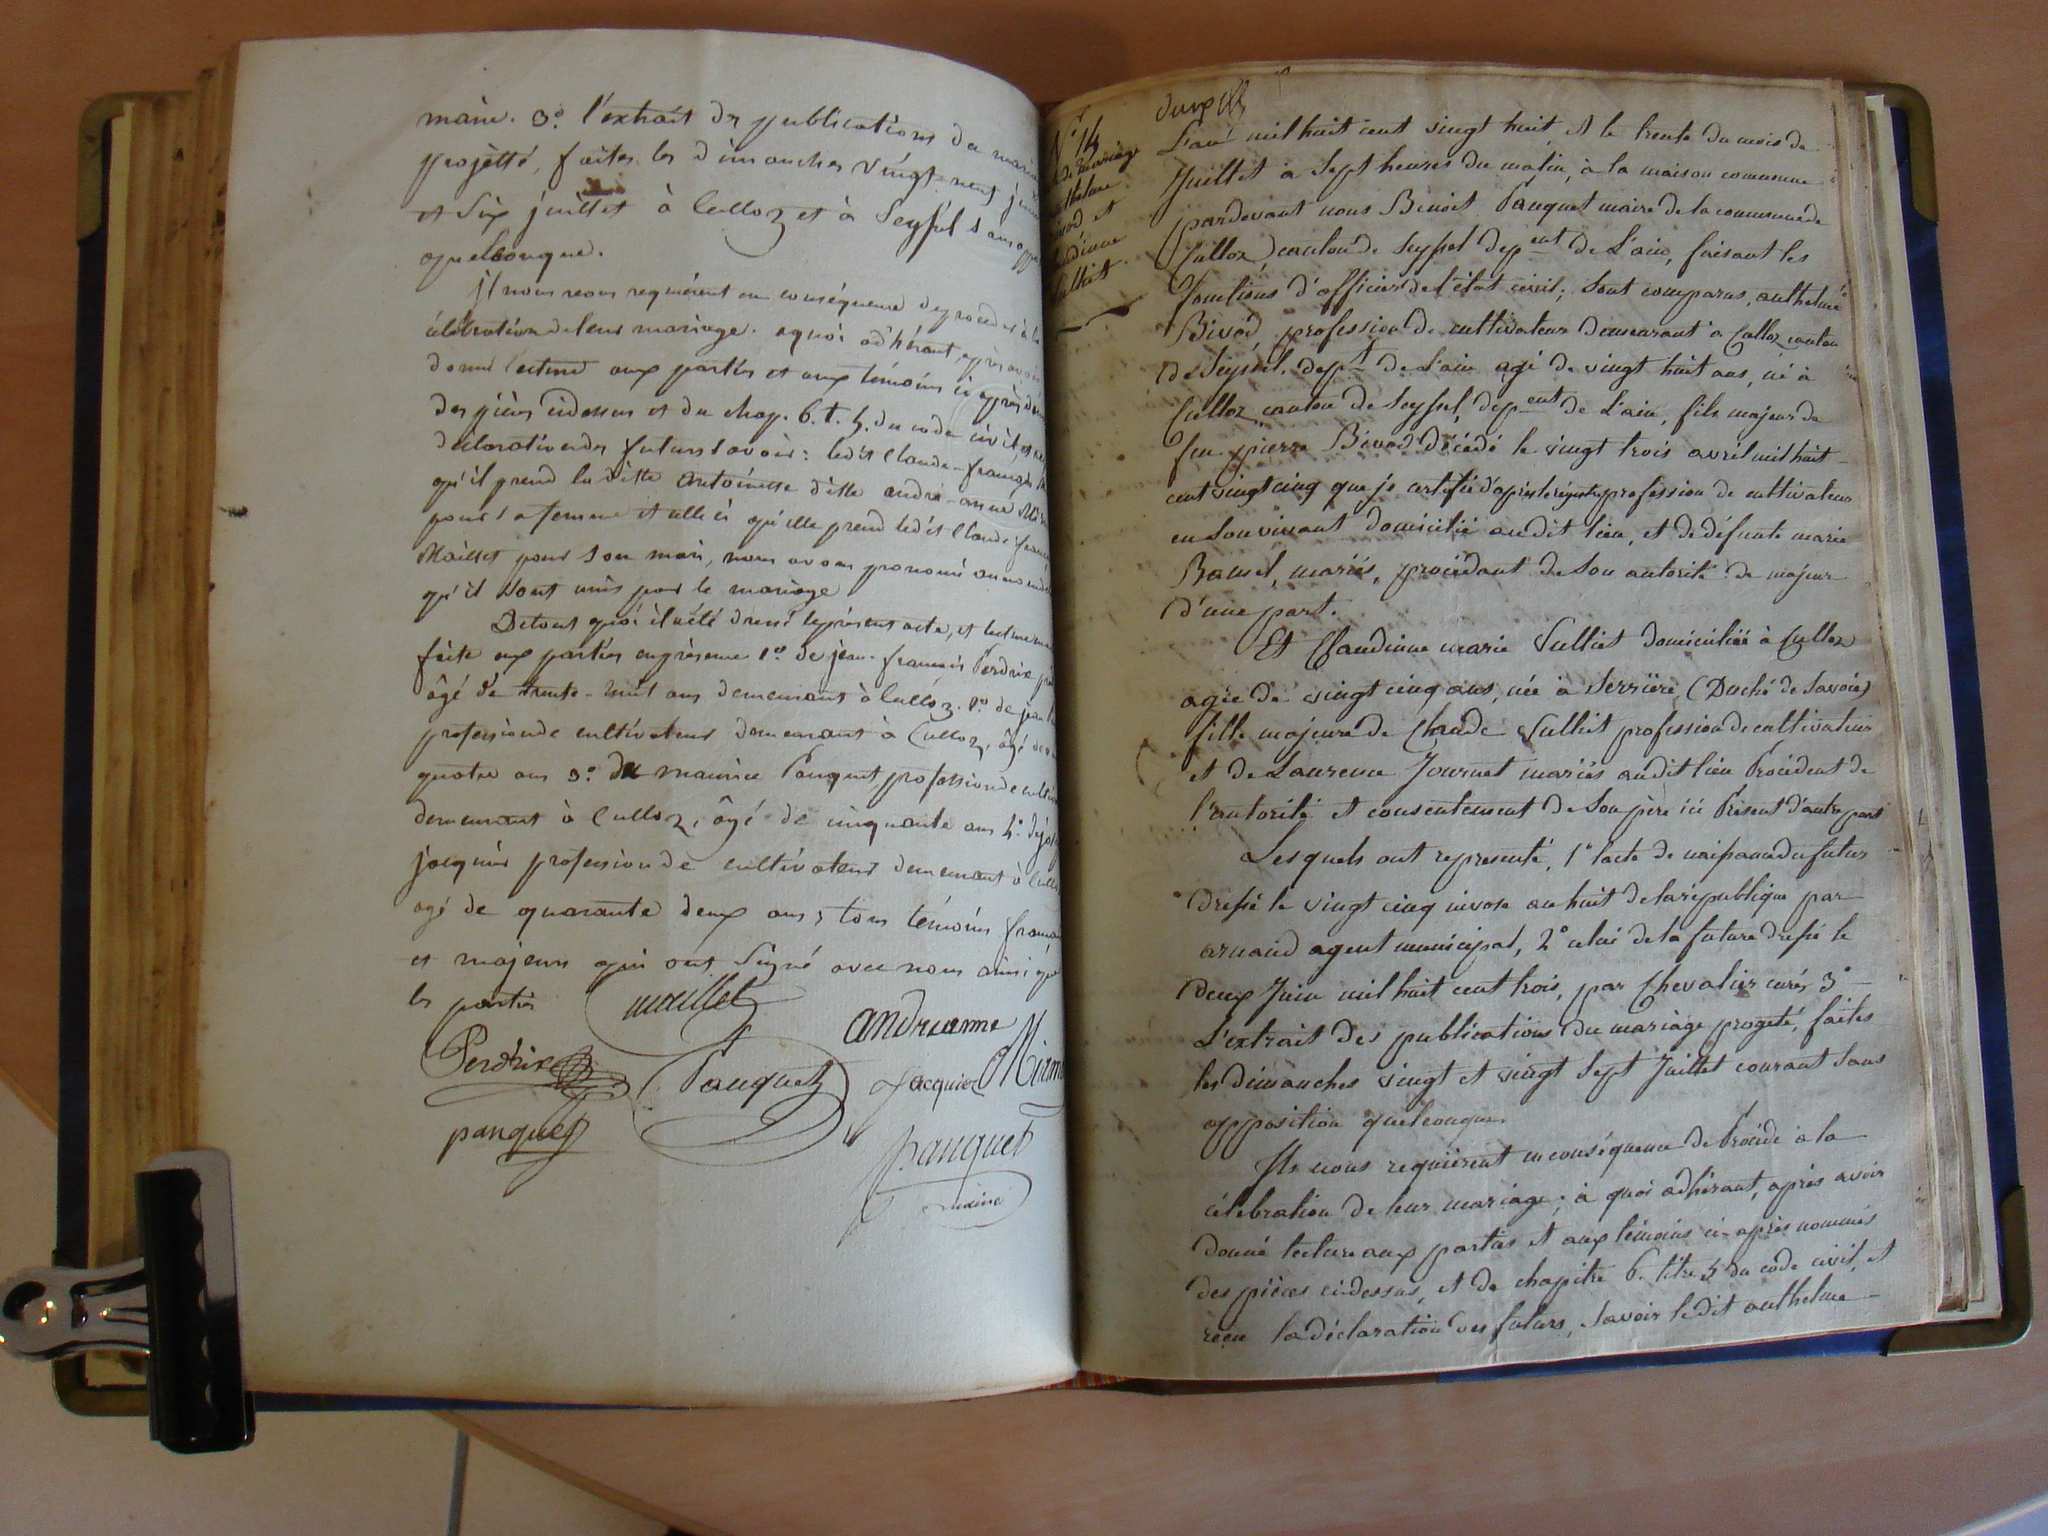 maire. 3° l'extrait des publications du
projetté, faites les dimanches vingt-neuf juin
et Six juillet à Culloz et à Seyssel sans
quelconque.
Il nous requièrent en conséquence de proceder à la
célébration de leur mariage. a quoi adhérant, après avoir
donné lecture aux parties et aux témoins ci après
des pièces cidessus et du chap. 6. t. 5. du code civil, et
déclaration des futurs savoir: ledit Claude-françois
qu'il prend la ditte antoinette ditte andré-anne
pour sa femme et celle ci qu'elle prend ledit Claude
Maillet pour son mari, nous avons prononcé au nom
qu'il sont unis par le mariage
De tout quoi il a été dressé le présent acte, et lecture
faite aux parties en présence 1° de jean-françois Perdrix
âgé de trente-huit ans demeurant à Culloz. 2° de jean
profession de cultivateur demeurant à Culloz, âgé de
quatre ans 3° de maurice Pauquet profession de
demeurant à Culloz, âgé de cinquante ans 4° de
jacquier profession de cultivateur demeurant à
agé de quarante deux ans, tous témoins
et majeurs qui ont Signé avec nous ainsi que
les parties
maillet
andrianne
Perdrix
Pauquet
Jacquier
pauquet
pauquet
maire
N° 14
de mariage
anthelme
et
L'an mil huit cent vingt huit et le trente du mois de
Juillet à Sept heures du matin, à la maison commune
pardevant nous Benoit Pauquet maire de la commune de
Culloz canton de Seyssel depent de L'ain, faisant les
fonctions d'officier de l'état civil; Sont comparus, anthelme
Bivod, profession de cultivateur demeurant à Culloz canton
de Seyssel, dept de L'ain agé de vingt huit ans, né à
Culloz canton de Seyssel, depent de L'ain, fils majeur de
feu pierre Bivod décédé le vingt trois avril mil huit
cent vingt cinq que je certifié d'après le régistre profession de cultivateur
en son vivant domicilié audit lieu, et de défunte marie
mariés, procédant de Son autorité de majeur
d'une part.
Et Claudinne marie Vulliet domiciliée à Culloz
agée de vingt cinq ans, née à Serrière (Duché de Savoie)
fille majeure de Claude Vulliet profession de cultivateur
et de Laurence Journet mariés audit lieu Procédent de
l'autorité et consentement de Son père ici Présent d'autre part
Lesquels ont representé, 1° l'acte de naissance du futur
dressé le vingt cinq nivose an huit de la république par
arnaud agent municipal, 2° celui de la future dressé le
deux Juin mil huit cent trois, par Chevalier curés 3°
L'extrait des publications du mariage progeté, faites
les dimanches vingt et vingt Sept Juillet courant Sans
opposition quelconque
Ils nous requièrent en conséquence de Procédé à la
célébration de leur mariage; à quoi adhérant, après avoir
donné lecture aux parties et aux témoins ci-après nommés
des pièces cidessus, et de chapitre 6. titre 5 du code civil, et
reçu la déclaration des futurs, Savoir ledit anthelme